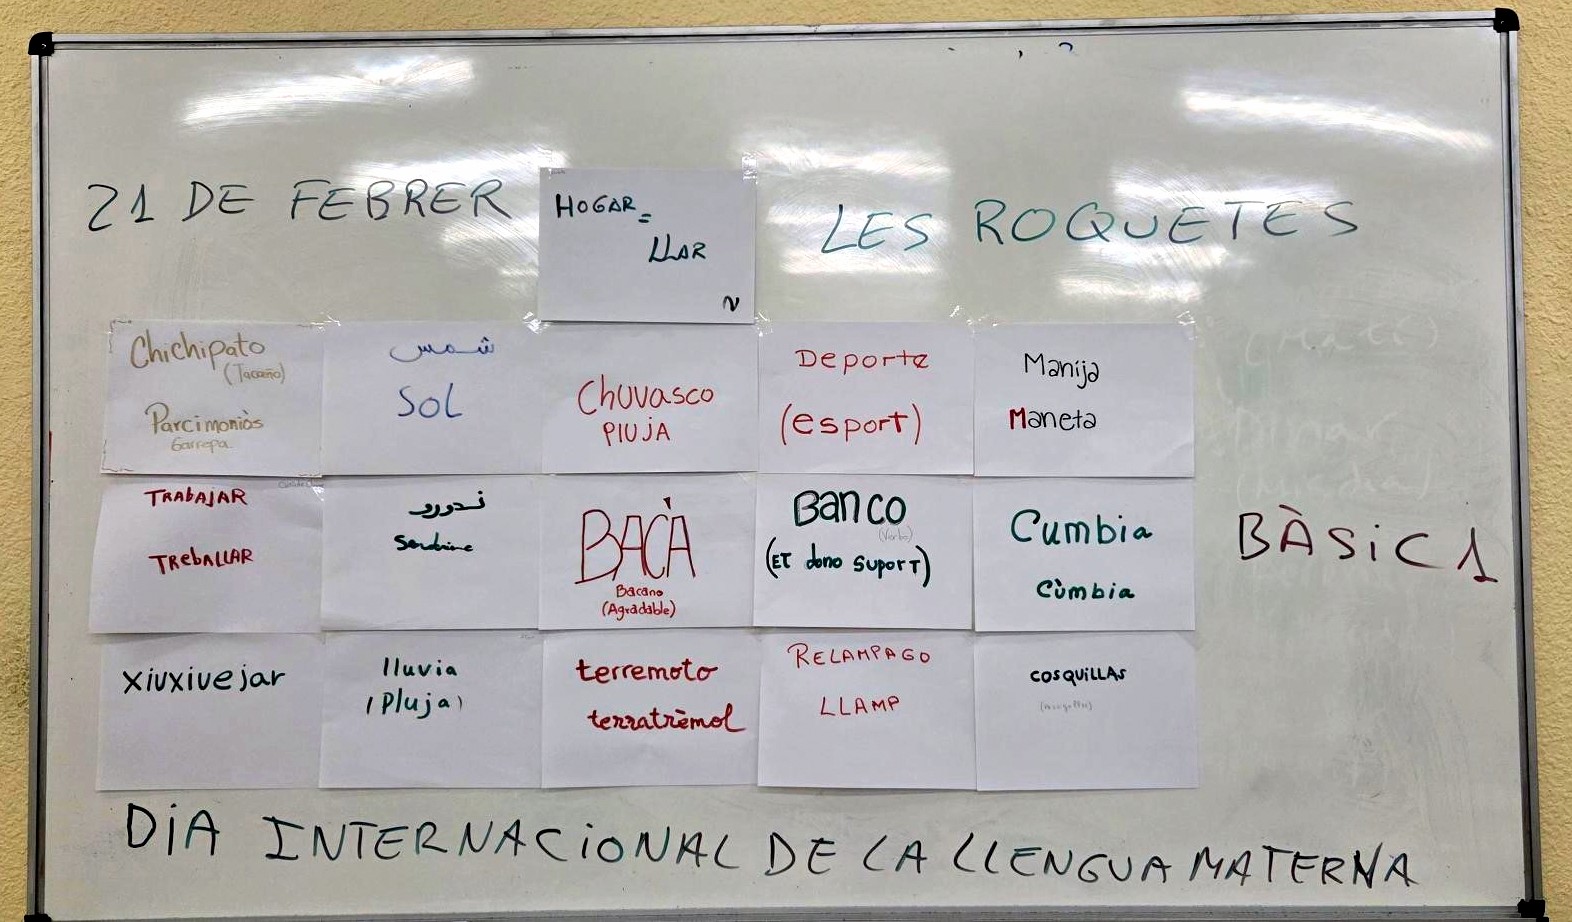 21 DE FEBRER
HOGAR =
LLAR
N
LES ROQUETES
Chichipato
(Tacaño)
Parcimoniòs
Garrepa
شمس
SOL
Chuvasco
PlUJA
Deporte
(esport)
Manija
Maneta
TRABAJAR
TREBALLAR
Sandrine
BACÀ
Bacano
(Agradable)
Banco
(Verbo)
(ET dono SUPORT)
Cumbia
Cùmbia
BÀSIC 1
xiuxiuejar
lluvia
(Pluja)
terremoto
terratrèmol
RELAMPAGO
LLAMP
COSQUILLAS
DIA INTERNACIONAL DE LA LLENGUA MATERNA